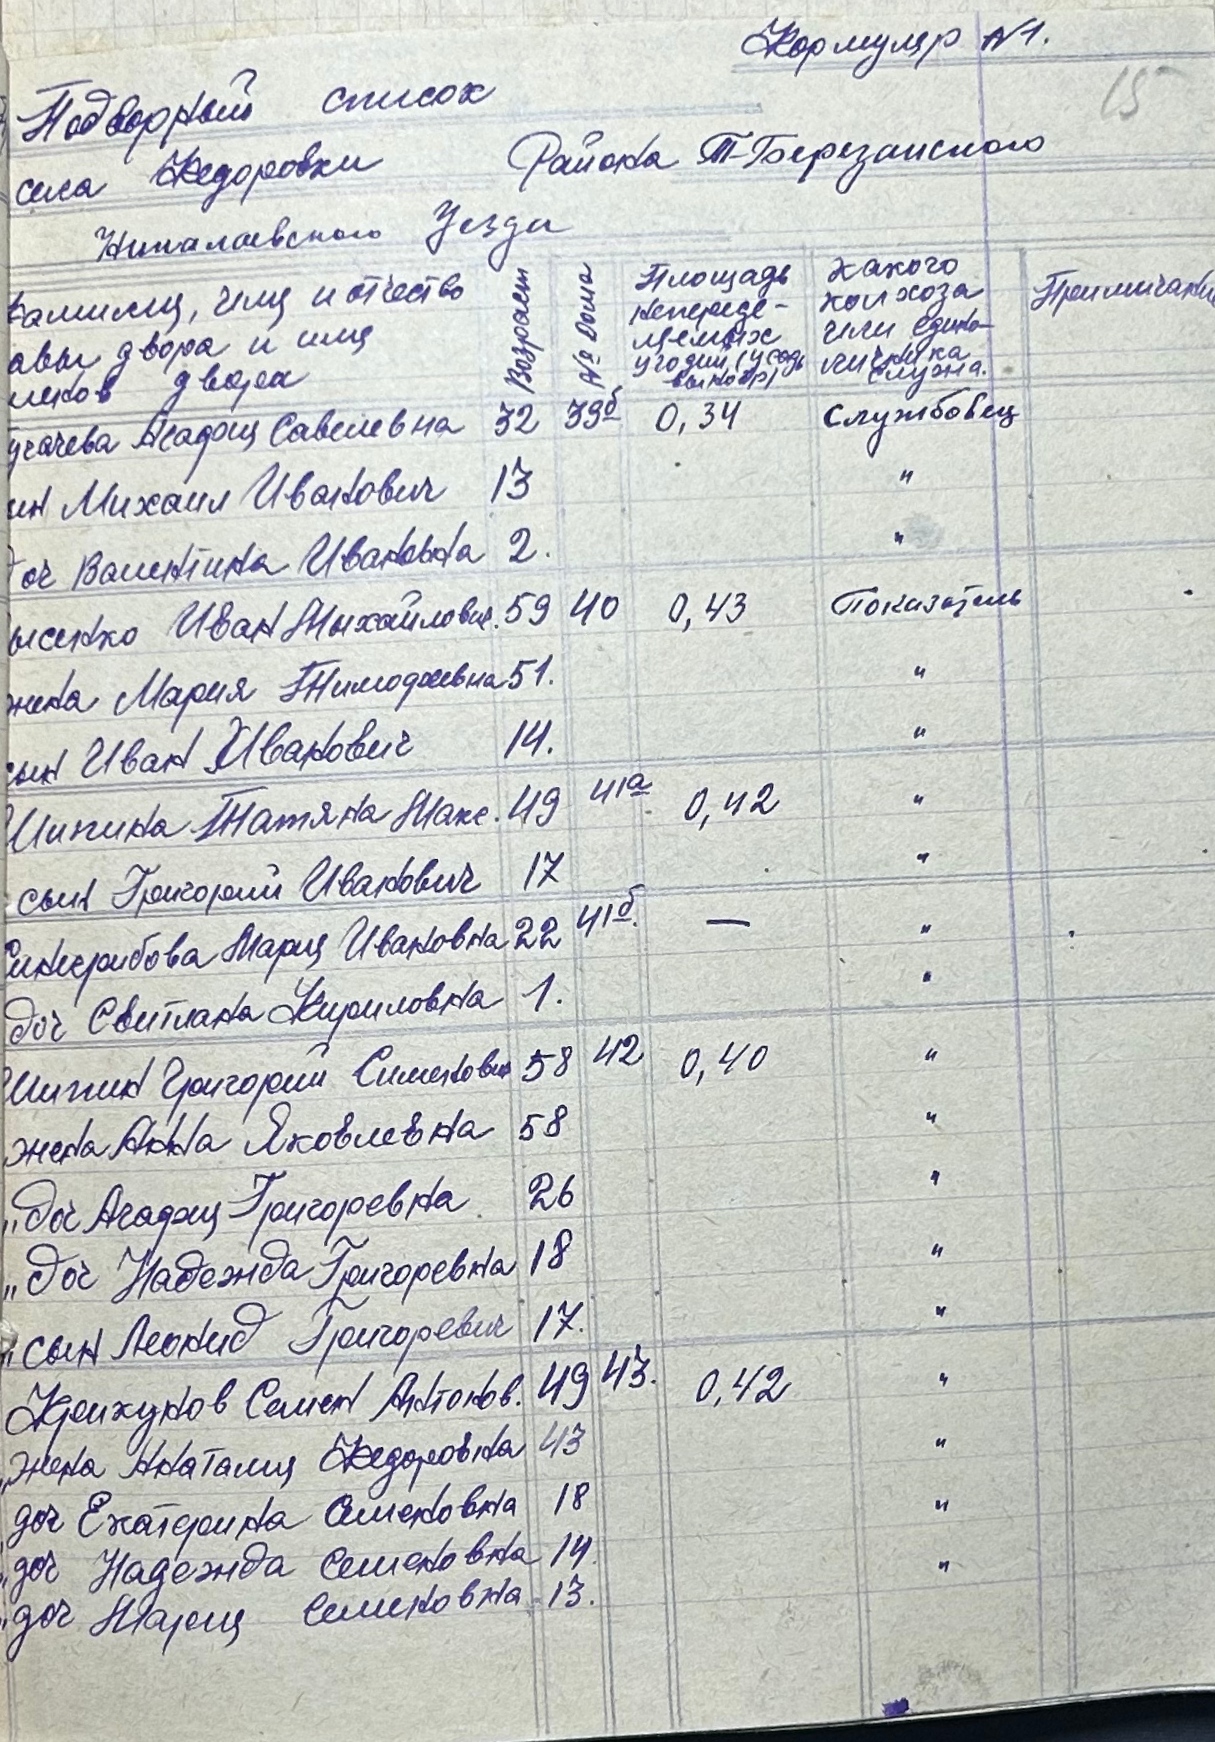 Формуляр №1.
15
Подворный список
села Федоровки Района Т-Березанского
Николаевского Уезда
Фамилия, имя и отчество
авы двора и имя
членов двора
Возраст
№ Дома
Площадь
непереде-
ляемых
угодий (усадь
Какого
колхоза
или едино-
личника
служа.
Примичани
Агафия Савелевна 32 39б 0,34 Службовец
ин Михаил Иванович 13 "
Доч Валентина Ивановна 2. "
ысенко Иван Михайлович. 59 40 0,43 Показатель
жена Мария Тимофеевна 51. "
сын Иван Иванович 14. "
Шипина Татяна Макс. 49 41а 0,42 "
сын Григорий Иванович 17 "
Мария Ивановна 22 41б. — "
доч Свитлана Кириловна 1. "
Шипин Григорий Семенович 58 42 0,40 "
жена Анна Яковлевна 58 "
" доч Агафия Григоревна 26 "
" доч Надежда Григоревна 18 "
" сын Леонид Григоревич 17. "
Крикунов Семен Антонов. 49 43. 0,42 "
" жена Наталия Федоровна 43 "
" доч Екатерина Семеновна 18 "
" доч Надежда Семеновна 14. "
" доч Мария Семеновна 13.